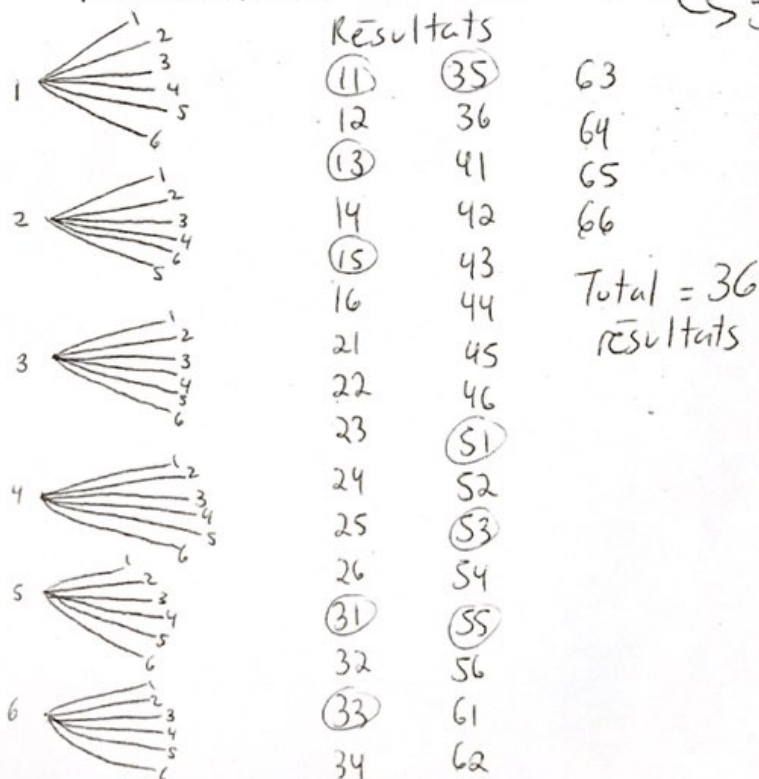 Résultats
1
1
2
3
4
5
6
2
1
2
3
4
6
5
3
1
2
3
4
5
6
4
1
2
3
4
5
6
5
1
2
3
4
5
6
6
1
2
3
4
5
6
11
12
13
14
15
16
21
22
23
24
25
26
31
32
33
34
35
36
41
42
43
44
45
46
51
52
53
54
55
56
61
62
63
64
65
66
Total = 36
résultats